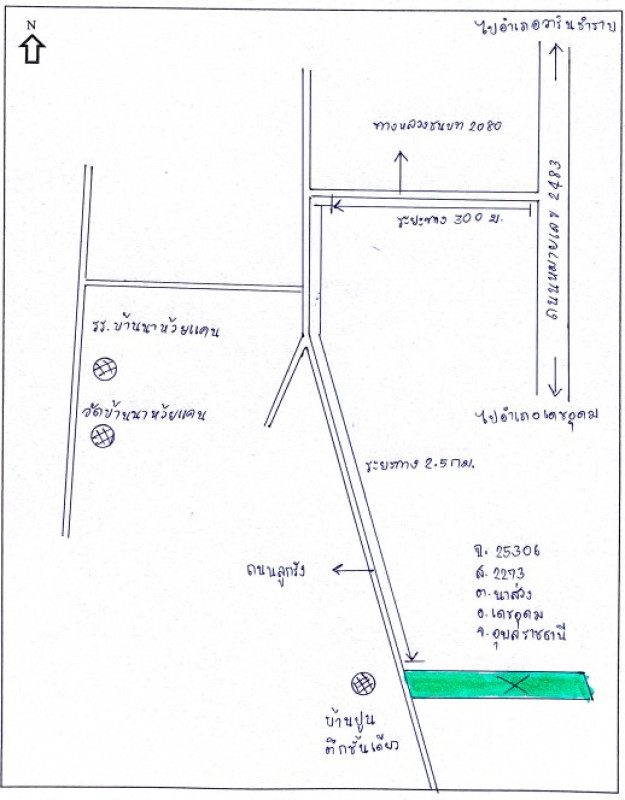 N
ไปอำเภอวารินชำราบ
ทางหลวงชนบท 2080
ถนนหมายเลข 2483
ระยะทาง 300 ม.
รร.บ้านนาห้วยแคน
วัดบ้านนาห้วยแคน
ไปอำเภอเดชอุดม
ระยะทาง 2.5 กม.
ถนนลูกรัง
ฉ. 25306
ส. 2273
ต. นาส่วง
อ. เดชอุดม
จ. อุบลราชธานี
บ้านปูน
ตึกชั้นเดียว